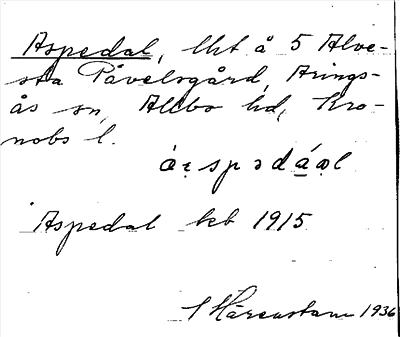 Aspedal, lht å 5 Alve-
sta Påvelsgård, Arings-
ås sn, Allbo hd, Kro-
nobs l.
Aspedal kb 1915
S Härenstam 1936